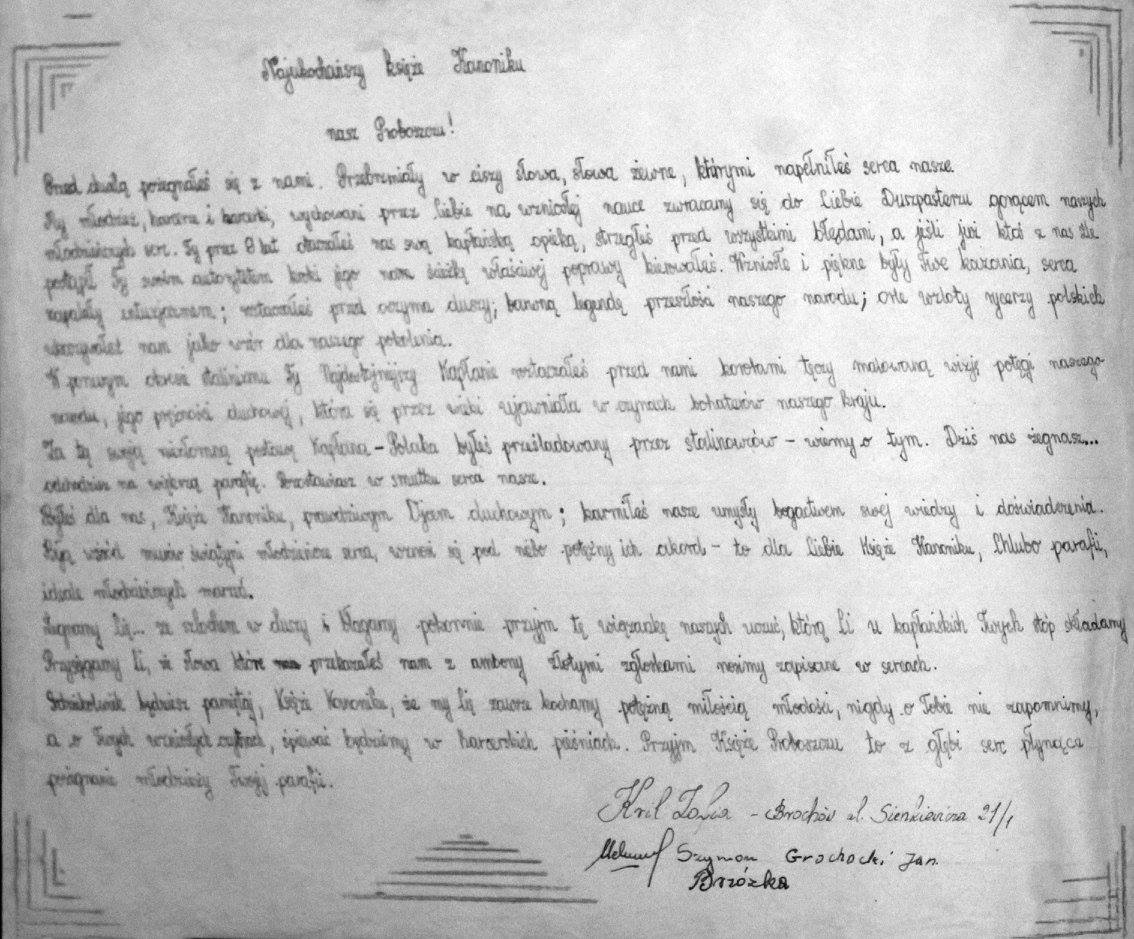 Najukochańszy księże Kanoniku
nasz Proboszczu!
Przed chwilą pożegnałeś się z nami. Przebrzmiały w ciszy słowa, słowa rzewne, którymi napełniłeś serca nasze
My młodzież, harcerze i harcerki, wychowani przez Ciebie na wzniosłej nauce zwracamy się do Ciebie Duszpasterzu gorącem naszych
młodzieńczych serc. Ty przez 8 lat otaczałeś nas swą kapłańską opieką, strzegłeś przed wszystkimi błędami, a jeśli już ktoś z nas źle
postąpił Ty swoim autorytetem kroki jego na ścieżkę właściwej poprawy kierowałeś. Wzniosłe i piękne były Twe kazania, serca
zapalały entuzjazmem; roztaczałeś przed oczyma duszy; barwną legendę przeszłości naszego narodu; orle wzloty rycerzy polskich
ukazywałeś nam jako wzór dla naszego pokolenia.
W ponurym okresie stalinizmu Ty Najdostojniejszy Kapłanie roztaczałeś przed nami kolorami tęczy malowaną wizję potęgi naszego
narodu, jego prężności duchowej, która się przez wieki ujawniała w czynach bohaterów naszego kraju.
Za tę swoją niezłomną postawę Kapłana - Polaka byłeś prześladowany przez stalinowców - wiemy o tym. Dziś nas żegnasz...
odchodzisz na większą parafię. Pozostawiasz w smutku serca nasze.
Byłeś dla nas, Księże Kanoniku, prawdziwym Ojcem duchowym; karmiłeś nasze umysły bogactwem swej wiedzy i doświadczenia.
Biją wśród murów świątyni młodzieńcze serca, wznosi się pod niebo potężny ich akord - to dla Ciebie Księże Kanoniku, Chlubo parafii,
ideale młodzieńczych marzeń.
Żegnamy Cię... ze szlochem w duszy i błagamy pokornie przyjm tę wiązankę naszych uczuć, którą Ci u kapłańskich Twych stóp składamy
Przysięgamy Ci, że słowa które przekazałeś nam z ambony złotymi zgłoskami nosimy zapisane w sercach.
Gdziekolwiek będziesz pamiętaj, Księże Kanoniku, że my Cię zawsze kochamy potężną miłością młodości, nigdy o Tobie nie zapomnimy,
a o Twych wzniosłych czynach, śpiewać będziemy w harcerskich pieśniach. Przyjm Księże Proboszczu to z głębi serc płynące
pożegnanie młodzieży Twojej parafii.
Król Zofia - Brochów ul. Sienkiewicza 21/1
Szymon Grochocki Jan.
Brzózka